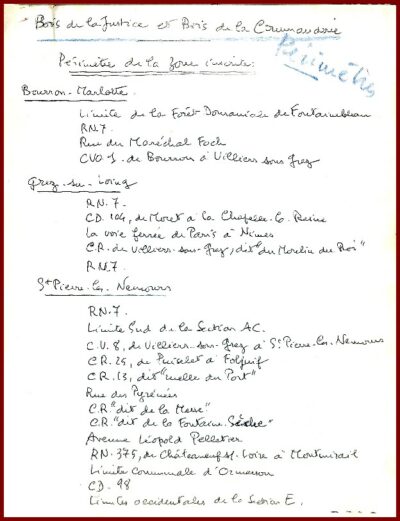 Bois de la Justice et Bois de la Commanderie
Périmètre
Périmètre de la zone inscrite:
Bourron-Marlotte.
Limite de la Forêt Domaniale de Fontainebleau
RN7.
Rue du Maréchal Foch
CVO 1. de Bourron à Villiers sous Grez
Grez-sur-Loing
RN.7.
CD. 104, de Moret à la Chapelle-la-Reine
La voie ferrée de Paris à Nîmes
C.R. de Villiers-sous-Grez, dit "du Moulin du Roi"
RN.7
St Pierre-les-Nemours
RN.7.
Limite Sud de la Section AC.
C.V. 8, de Villiers-sous-Grez à St Pierre-les-Nemours
C.R. 25, de Puiselet à Foljuif
C.R. 13, dit "ruelle du Port"
Rue des Pyrénées
C.R. "dit de la Messe"
C.R. "dit de la Fontaine Sèche"
Avenue Léopold Pelletier
RN. 375, de Châteauneuf-s.-Loire à Montmirail
Limite Communale d'Ormesson
CD. 98
Limites occidentales de la Section E.